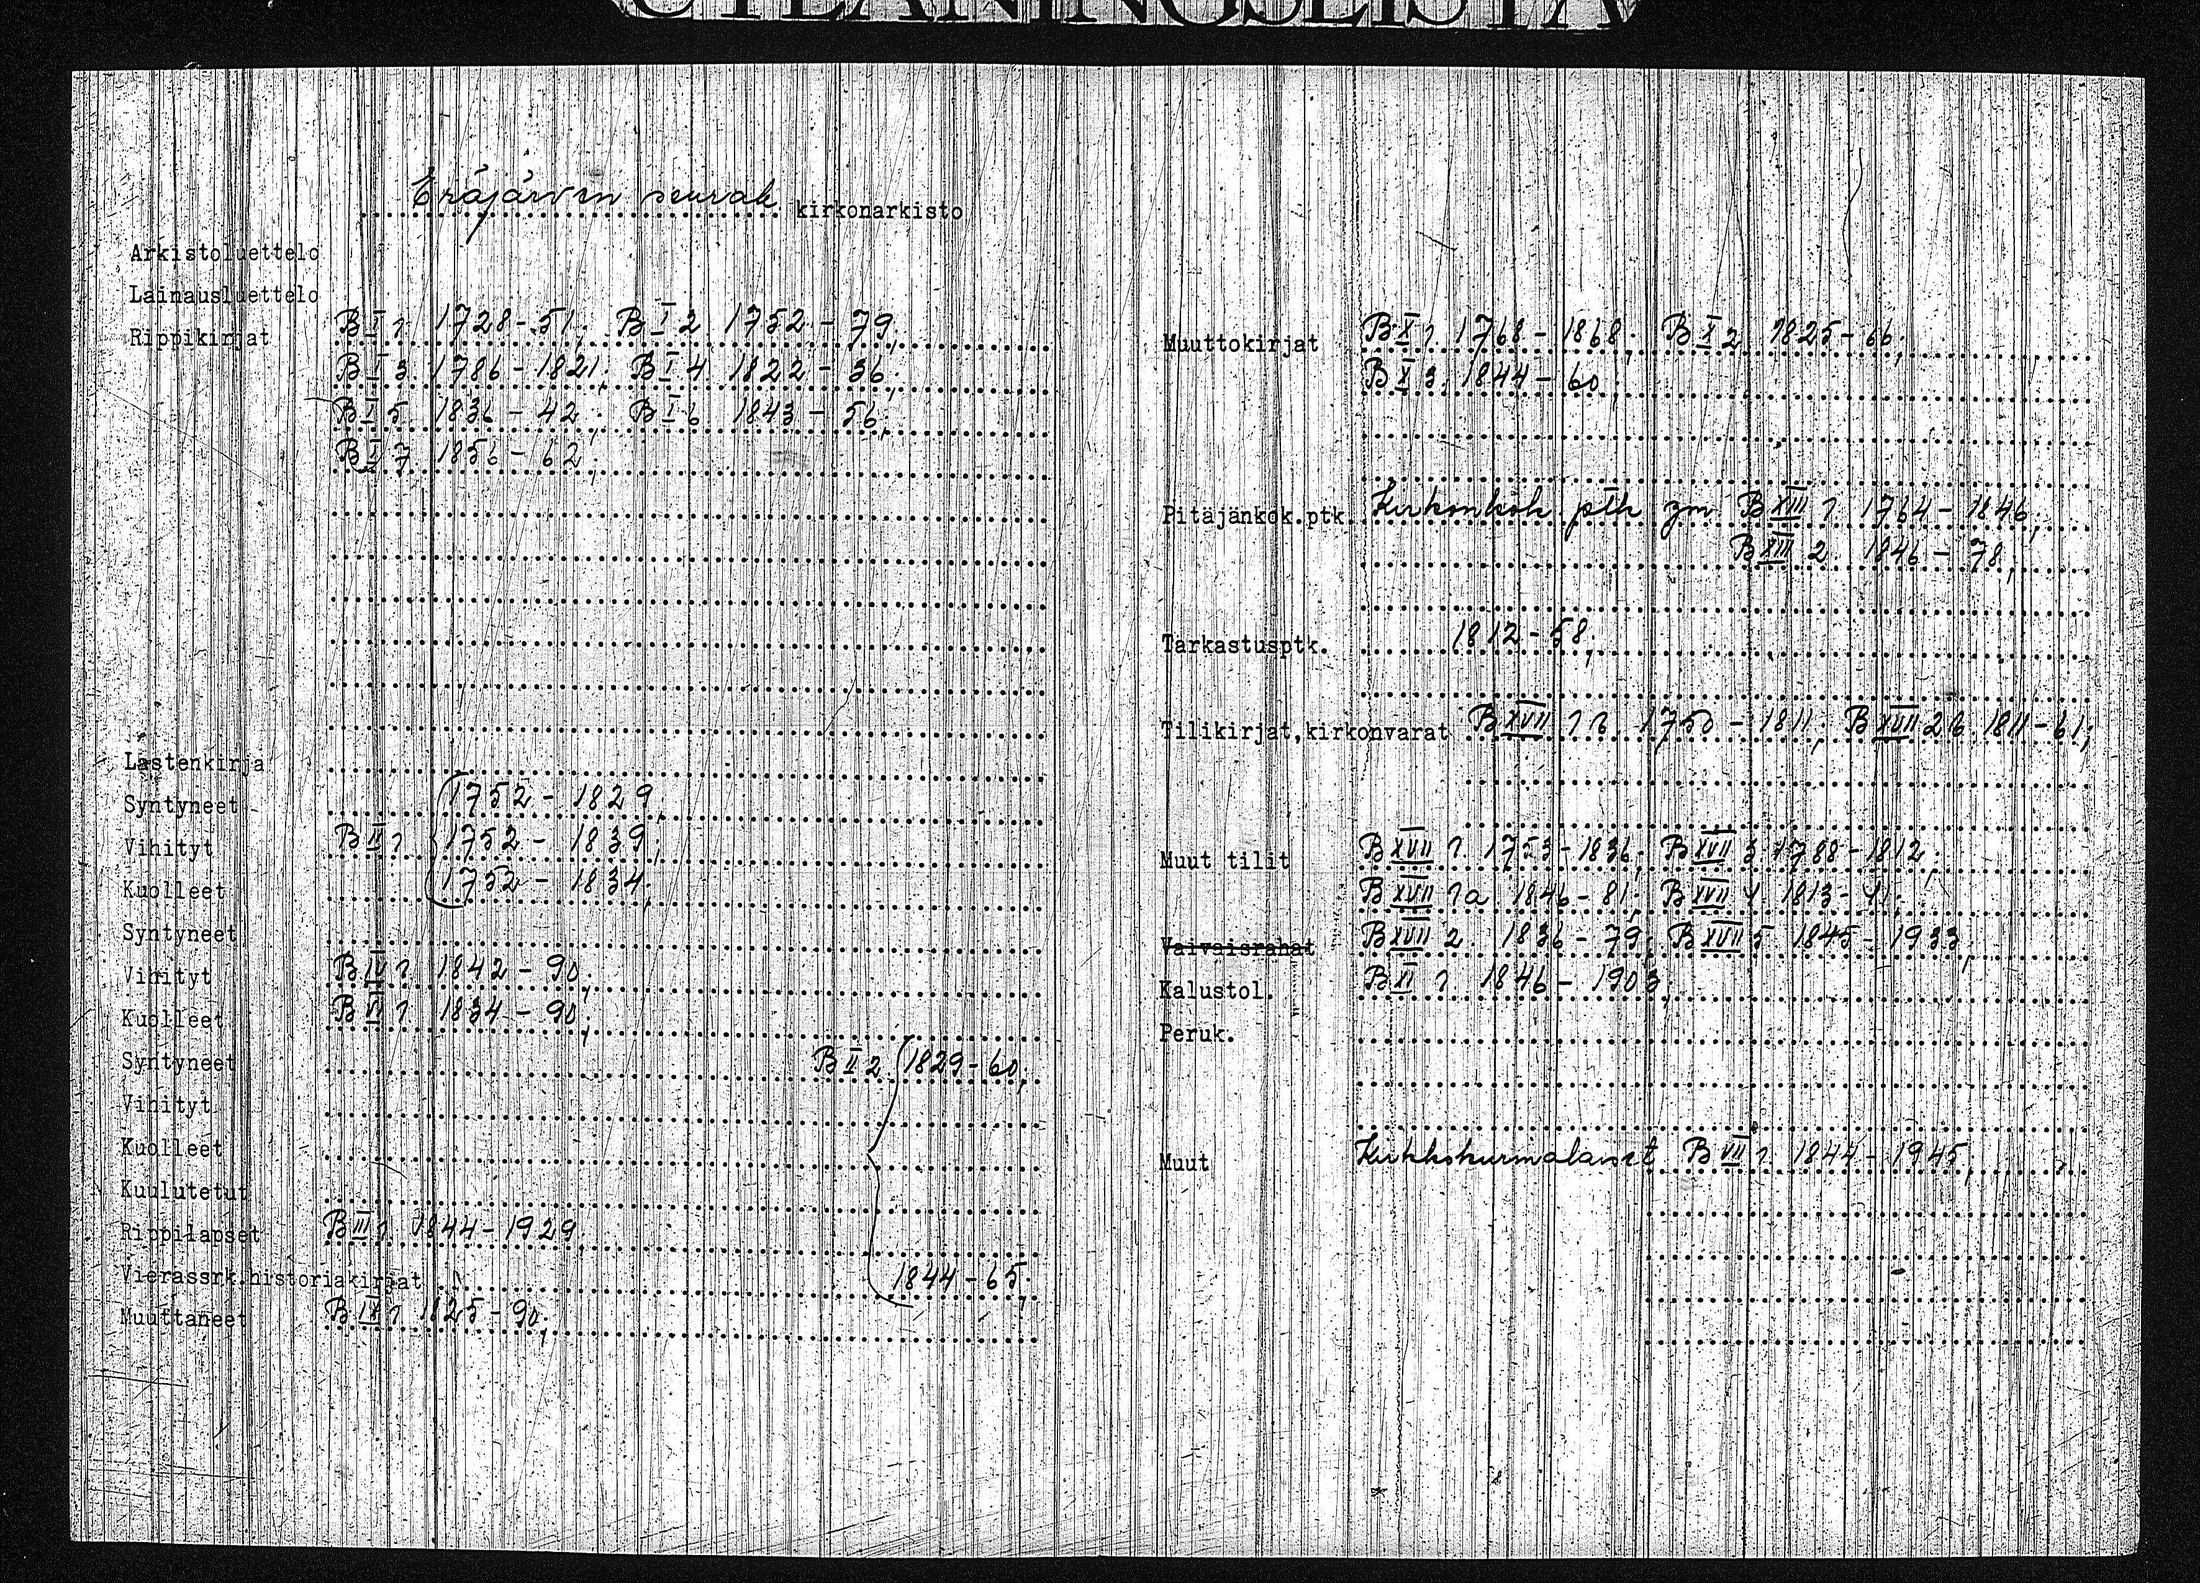 UTLÅNINGSLISTA
Eräjärven seurak kirkonarkisto
Arkistoluettelo
Lainausluettelo
Rippikirjat B I 1 1728-51; B I 2 1752-79;
B I 3 1786-1821; B I 4 1822-36;
B I 5 1836-42; B I 6 1843-56;
B I 7 1856-62;
Lastenkirja
Syntyneet 1752-1829;
Vihityt B II 1 1752-1839;
Kuolleet 1752-1834;
Syntyneet
Vihityt B IV 1 1842-90;
Kuolleet B VI 1 1834-90;
Syntyneet B II 2 1829-60;
Vihityt
Kuolleet
Kuulutetut
Rippilapset B III 1 1844-1929
Vierassrk.historiakirjat 1844-65;
Muuttaneet B IX 1 1825-90;
Muuttokirjat B X 1 1768-1868; B X 2 1825-66;
B X 3 1844-60;
Pitäjänkok.ptk. Kirkonkok. ptk ym B XIII 1 1764-1846;
B XIII 2 1846-78;
Tarkastusptk. 1812-58;
Tilikirjat,kirkonvarat B XVII 1 b 1750-1811; B XVII 2 b 1811-61;
Muut tilit B XVII 1 1753-1836; B XVII 3 1788-1812;
B XVII 1a 1846-81; B XVII 4 1813-41;
Vaivaisrahat B XVII 2 1836-79; B XVII 5 1845-1933;
Kalustol. B XI 1 1846-1903;
Peruk.
Muut B VII 1 1844-1945;